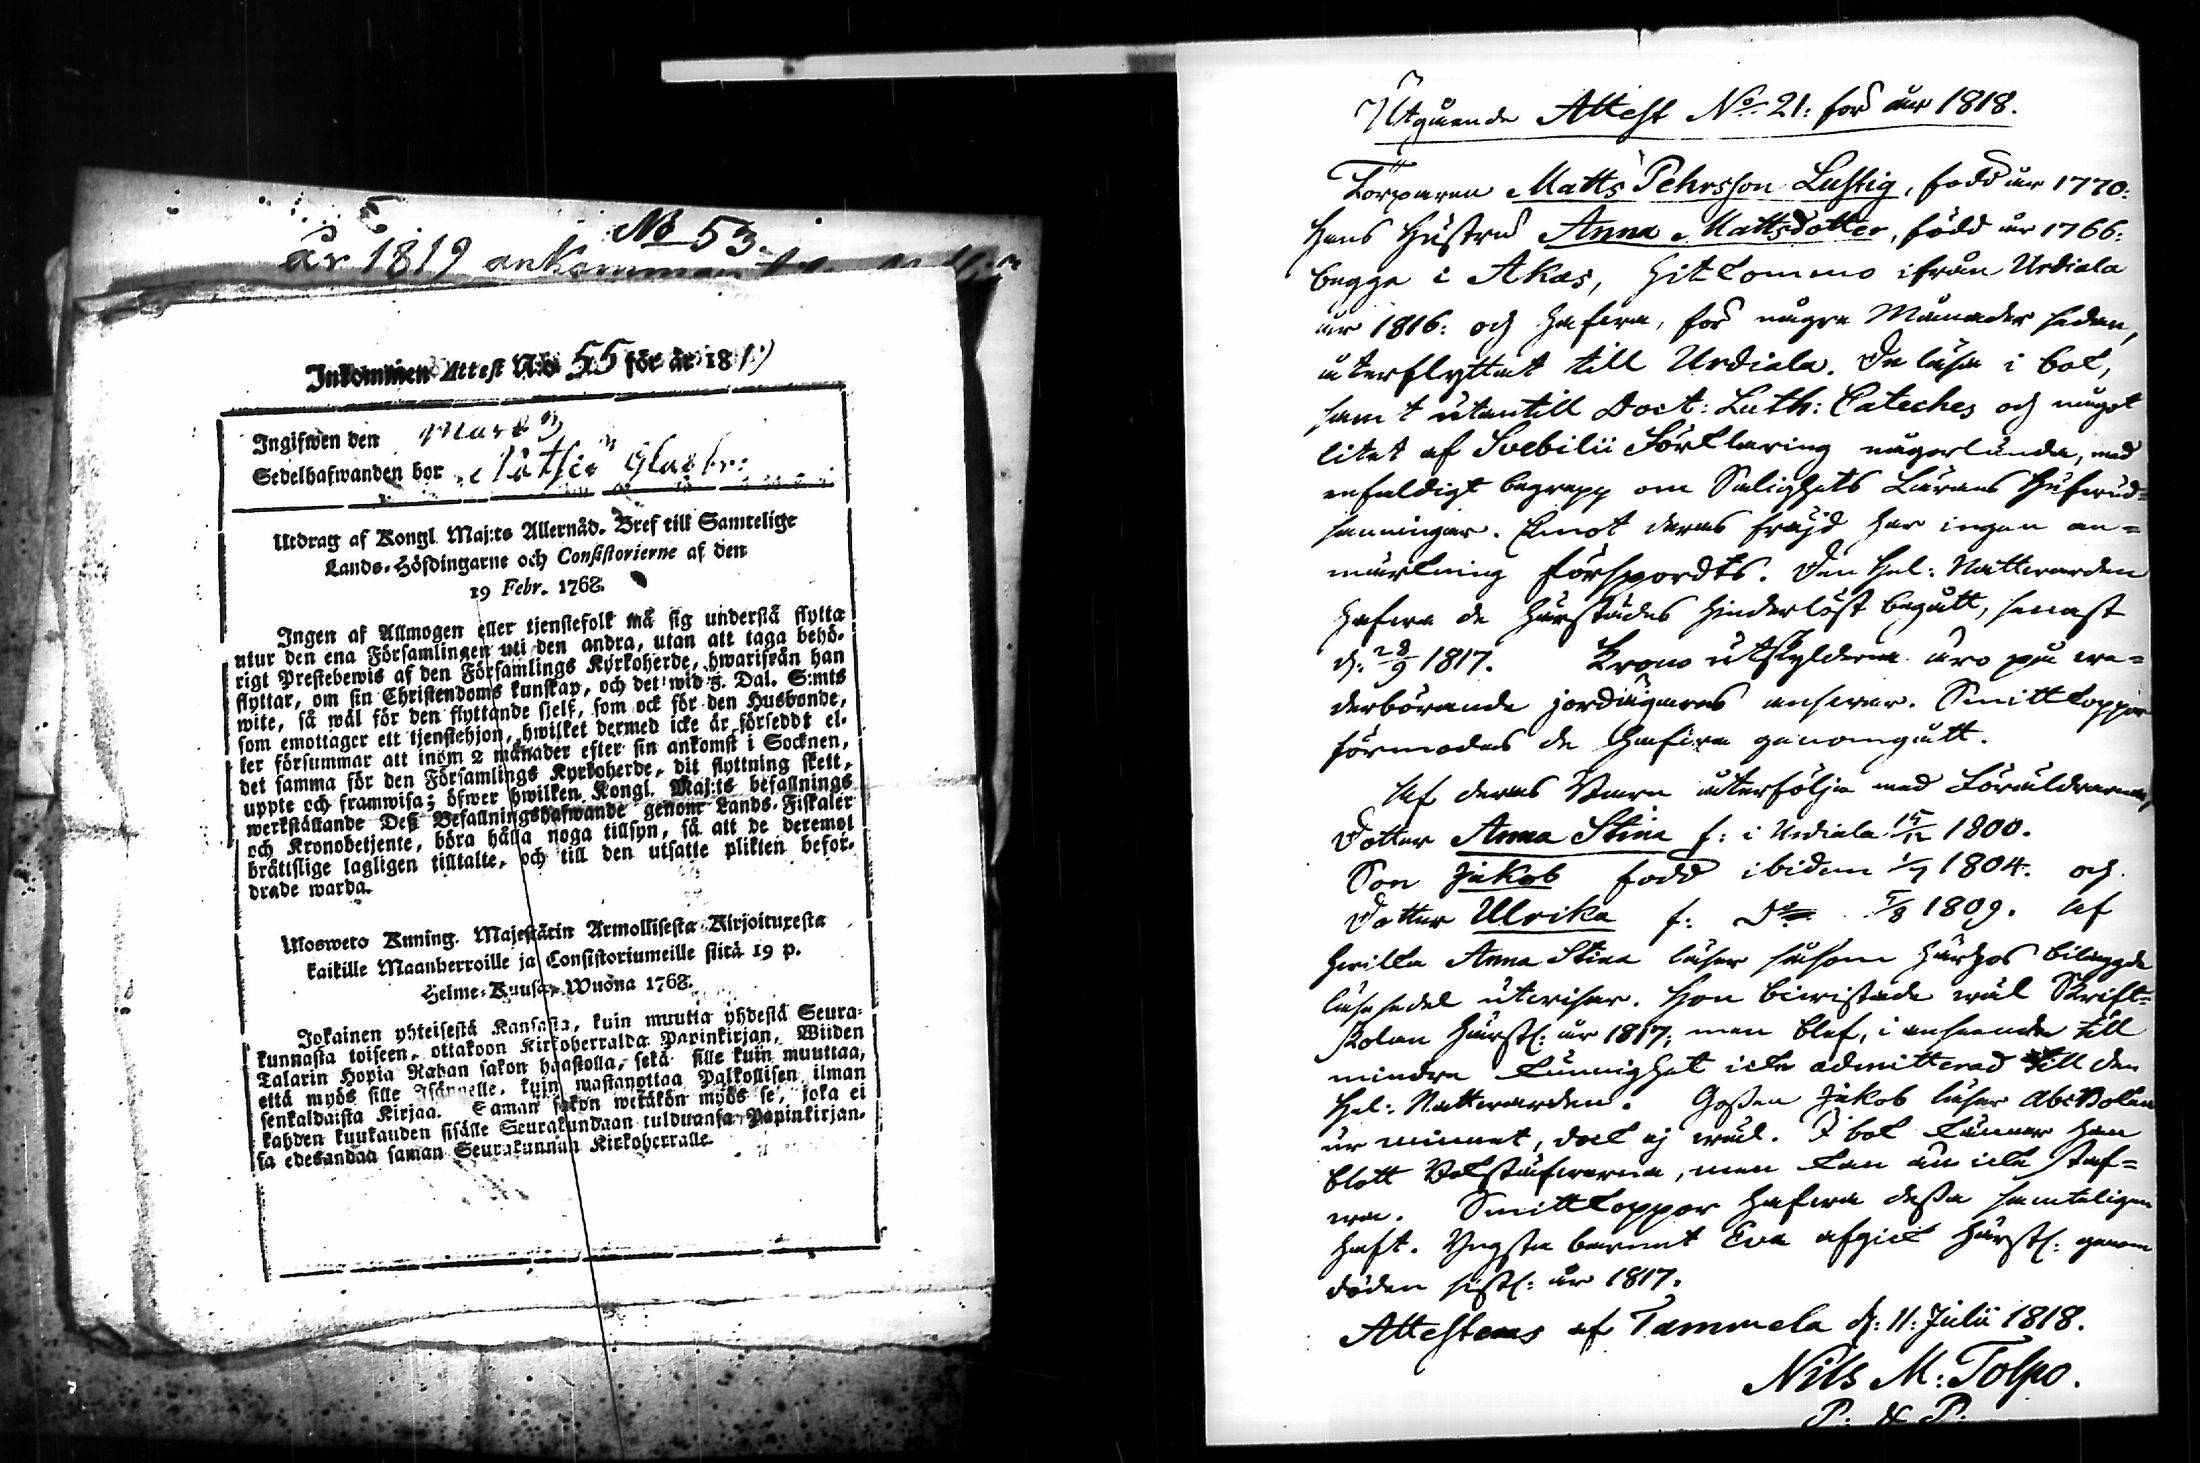 No 53.
år 1819 ankommen
Inkommen Attest N:o 55 för år 1819
Ingifwen den
Sedelhafwanden bor
Utdrag af Kongl. Maj:ts Allernåd. Bref till Samtelige
Lands-Höfdingarne och Consistorierne af den
19 Febr. 1768.
Ingen af Allmogen eller tjenstefolk må sig understå flytta
utur den ena Församlingen uti den andra, utan att taga behö-
rigt Prestebewis af den Församlings Kyrkoherde, hwarifrån han
flyttar, om sin Christendoms kunskap, och det wid 5. Dal. S:mts
wite, så wäl för den flyttande sjelf, som ock för den Husbonde,
som emottager ett tjenstehjon, hwilket dermed icke är försedt el-
ler försummar att inom 2 månader efter sin ankomst i Socknen,
det samma för den Församlings Kyrkoherde, dit flyttning skett,
uppte och framwisa; öfwer hwilken Kongl. Maj:ts befallnings
werkställande Deß Befallningshafwande genom Lands-Fiskaler
och Kronobetjente, böra hålla noga tillsyn, så att de deremot
bråttslige lagligen tilltalte, och till den utsatte plikten befor-
drade warda.
Ulosweto Kuning. Majestätin Armollisesta Kirjoituxesta
kaikille Maanherroille ja Consistoriumeille siitä 19 p.
Helme-Kuusa Wuona 1768.
Jokainen yhteisestä Kansasta, kuin muutta yhdestä Seura-
kunnasta toiseen, ottakoon Kirkoherralda Papinkirjan, Wiiden
Talarin Hopia Rahan sakon haastolla, sekä sille kuin muuttaa,
että myös sille Isännelle, kuin wastanottaa Palkollisen ilman
senkaldaista Kirjaa. Saman sakon wetäkön myös se, joka ei
kahden kuukauden sisälle Seurakundaan tulduansa Papinkirjan-
sa edesandaa saman Seurakunnan Kirkoherralle.
Utgående Attest No 21: för år 1818.
Torparen Matts Pehrsson Lustig, född år 1770.
Hans Hustru Anna Mattsdotter, född år 1766.
begge i Akas, hitkommo ifrån Urdiala
år 1816: och hafwa, för några Månader sedan,
återflyttat till Urdiala. De läsa i bok,
samt utantill Doct: Luth: Cateches och något
litet af Svebilii Förklaring någorlunda, med
enfaldigt begrepp om Salighets Lärans Hufwud-
sanningar. Emot deras fräjd har ingen an-
märkning försports. Den Hel: Nattwarden
hafwa de härstädes hinderlöst begått, senast
d: 28/9 1817. Krono utskylderna äro på we-
derbörande jordägares answar. Smittkoppor
förmodas de hafwa genomgått.
Af deras Barn återfölja med Föräldrarna,
Dotter Anna Stina f: i Urdiala 15/12 1800.
Son Jakob född ibidem 1/7 1804. och
Dotter Ulrika f: Do 5/8 1809. Af
hwilka Anna Stina läser såsom härhos bilagde
läsesedel utwisar. Hon biwistade wäl Skrift-
skolan härst: år 1817; men blef, i anseende till
mindre kunnighet icke admitterad till den
Hel: Nattwarden. Goßen Jakob läser AbcBoken
ur minnet, dock ej wäl. I bok känner han
blott Bokstäfwerna, men kan än icke staf-
wa. Smittkoppor hafwa deßa samteligen
haft. Yngsta barnet Eva afgick härst: genom
döden sistl: år 1817.
Attesteras af Tammela d: 11: Julii 1818.
Nils M: Tolpo.
P: & P: